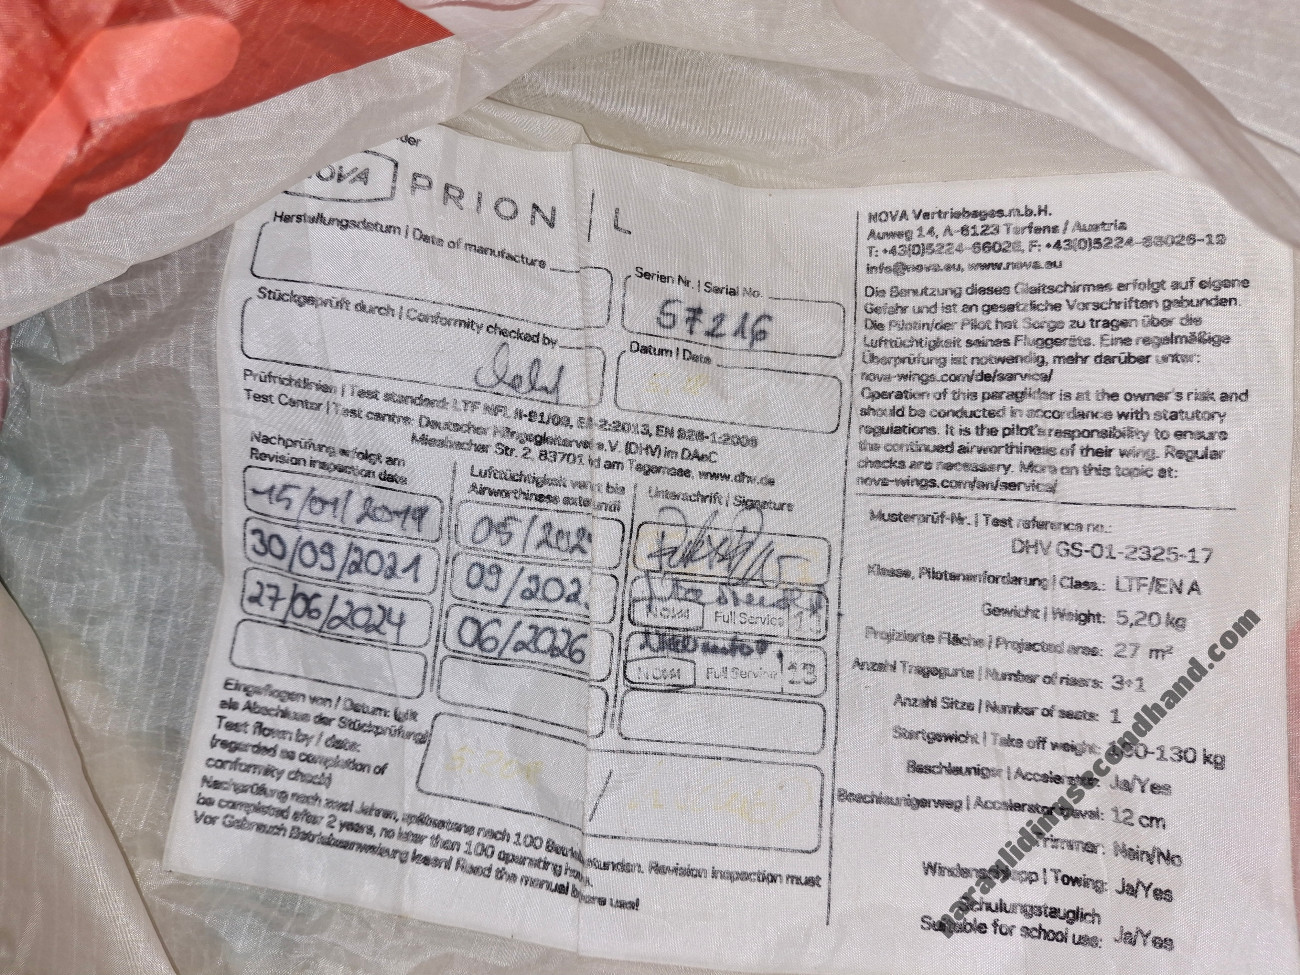 NOVA PRION | L
Herstellungsdatum | Date of manufacture
Serien Nr. | Serial No.
57216
Stückgeprüft durch | Conformity checked by
Datum | Date
Prüfrichtlinien | Test standard: LTF NFL II-91/09, EN 926-1:2006
Test Center | Test centre: Deutscher Hängegleiterv e.V. (DHV) im DAeC
Miesbacher Str. 2, 83701 am Tegernsee, www.dhv.de
Nachprüfung erfolgt am
Revision inspection date
Lufttüchtigkeit bis
Airworthiness
Unterschrift | Signature
15/01/2019 05/202
30/09/2021 09/202
Full Service 11
27/06/2024 06/2026
Full Service 13
Eingeflogen von / Datum:
als Abschluss der Stückprüfung)
Test flown by / date:
(regarded as completion of
conformity check)
/
Nachprüfung nach zwei Jahren, spätestens nach 100 stunden. Revision inspection must
be completed after 2 years, no later than 100 operating
Vor Gebrauch Betriebsanweisung lesen! Read the manual use!
NOVA Vertriebsges.m.b.H.
Auweg 14, A-6123 Terfens / Austria
T: +43(0)5224-66026, F: +43(0)5224-66026-12
info@nova.eu, www.nova.eu
Die Benutzung dieses Gleitschirmes erfolgt auf eigene
Gefahr und ist an gesetzliche Vorschriften gebunden.
Die Pilotin/der Pilot hat Sorge zu tragen über die
Lufttüchtigkeit seines Fluggeräts. Eine regelmäßige
Überprüfung ist notwendig, mehr darüber unter:
nova-wings.com/de/service/
Operation of this paraglider is at the owner's risk and
should be conducted in accordance with statutory
regulations. It is the pilot's responsibility to ensure
the continued airworthiness of their wing. Regular
checks are necessary. More on this topic at:
nova-wings.com/en/service/
Musterprüf-Nr. | Test reference no.:
DHV GS-01-2325-17
Klasse, Pilotenanforderung | Class.: LTF/EN A
Gewicht | Weight: 5,20 kg
Projizierte Fläche | Projected area: 27 m²
Anzahl Tragegurte | Number of risers: 3+1
Anzahl Sitze | Number of seats: 1
Startgewicht | Take off weight: -130 kg
Beschleuniger | Accelerator: Ja/Yes
Beschleunigerweg | Accelerator travel: 12 cm
Trimmer: Nein/No
Windenschlepp | Towing: Ja/Yes
Schulungstauglich
Suitable for school use: Ja/Yes
paraglidingsecondhand.com